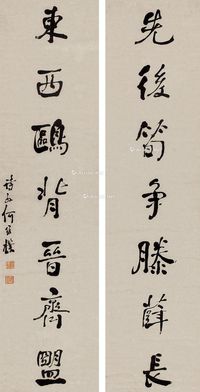 先後笋爭滕薛長
東西鷗背晉齊盟
詩孫何維樸